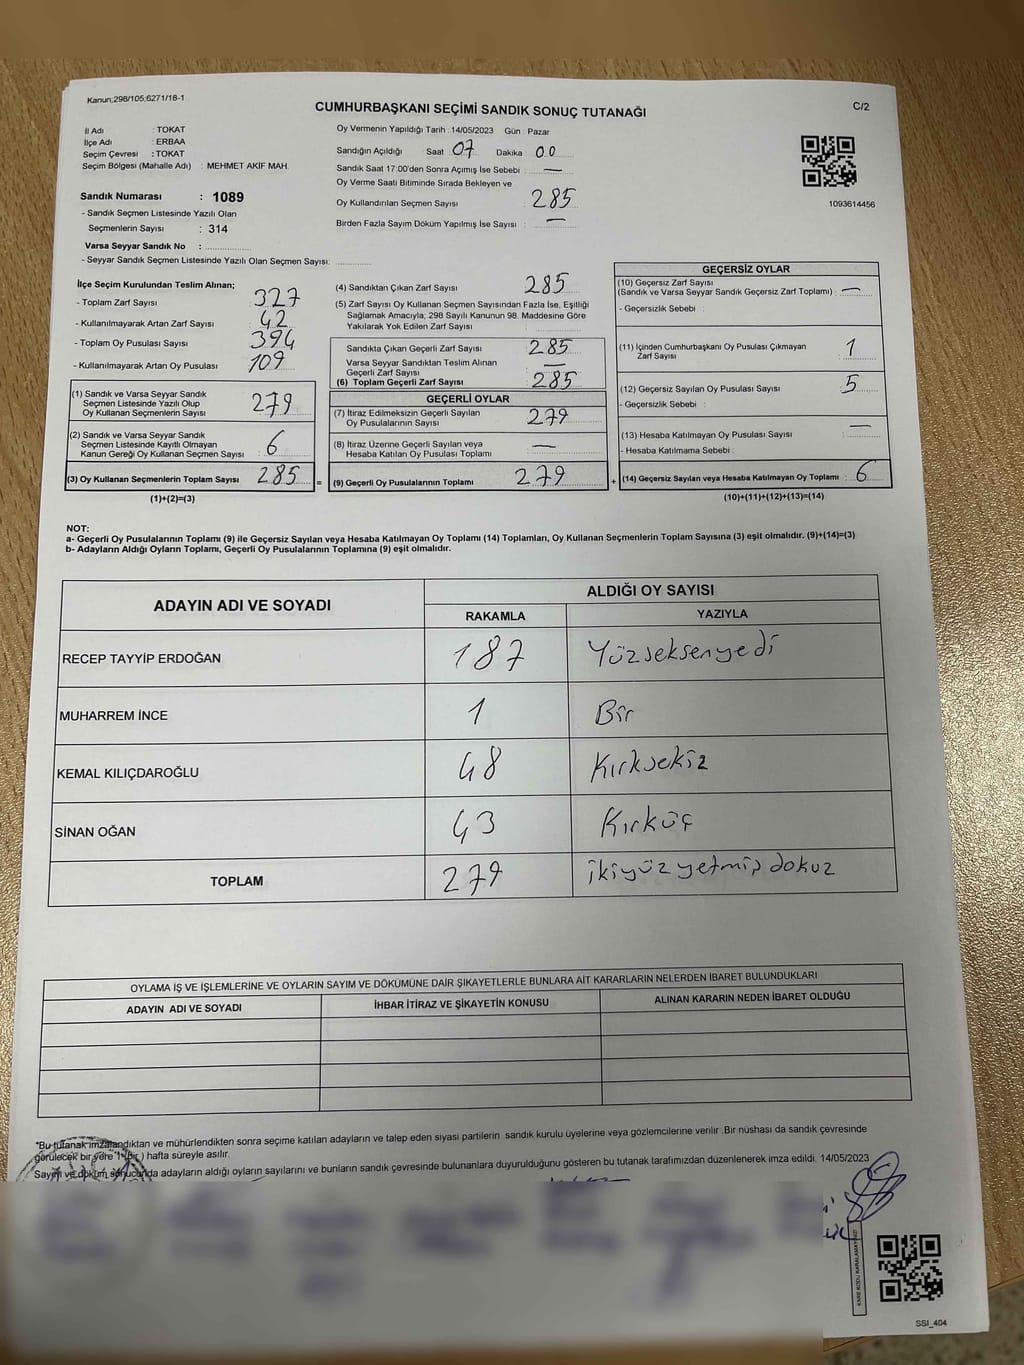 Kanun;298/105;6271/18-1
CUMHURBAŞKANI SEÇİMİ SANDIK SONUÇ TUTANAĞI
C/2
İl Adı : TOKAT
İlçe Adı : ERBAA
Seçim Çevresi : TOKAT
Seçim Bölgesi (Mahalle Adı) : MEHMET AKİF MAH.
Sandık Numarası : 1089
- Sandık Seçmen Listesinde Yazılı Olan
Seçmenlerin Sayısı : 314
Varsa Seyyar Sandık No : ..............
- Seyyar Sandık Seçmen Listesinde Yazılı Olan Seçmen Sayısı: ..............
Oy Vermenin Yapıldığı Tarih : 14/05/2023 Gün : Pazar
Sandığın Açıldığı Saat 07 Dakika 00
Sandık Saat 17:00'den Sonra Açımış İse Sebebi : —
Oy Verme Saati Bitiminde Sırada Bekleyen ve
Oy Kullandırılan Seçmen Sayısı : 285
Birden Fazla Sayım Döküm Yapılmış İse Sayısı : —
1093614456
İlçe Seçim Kurulundan Teslim Alınan;
- Toplam Zarf Sayısı : 327
- Kullanılmayarak Artan Zarf Sayısı : 42
- Toplam Oy Pusulası Sayısı : 394
- Kullanılmayarak Artan Oy Pusulası : 109
(1) Sandık ve Varsa Seyyar Sandık
Seçmen Listesinde Yazılı Olup
Oy Kullanan Seçmenlerin Sayısı : 279
(2) Sandık ve Varsa Seyyar Sandık
Seçmen Listesinde Kayıtlı Olmayan
Kanun Gereği Oy Kullanan Seçmen Sayısı : 6
(3) Oy Kullanan Seçmenlerin Toplam Sayısı : 285 =
(1)+(2)=(3)
(4) Sandıktan Çıkan Zarf Sayısı : 285
(5) Zarf Sayısı Oy Kullanan Seçmen Sayısından Fazla İse, Eşitliği
Sağlamak Amacıyla; 298 Sayılı Kanunun 98. Maddesine Göre
Yakılarak Yok Edilen Zarf Sayısı :
Sandıkta Çıkan Geçerli Zarf Sayısı : 285
Varsa Seyyar Sandıktan Teslim Alınan
Geçerli Zarf Sayısı : —
(6) Toplam Geçerli Zarf Sayısı : 285
GEÇERLİ OYLAR
(7) İtiraz Edilmeksizin Geçerli Sayılan
Oy Pusulalarının Sayısı : 279
(8) İtiraz Üzerine Geçerli Sayılan veya
Hesaba Katılan Oy Pusulası Toplamı : —
(9) Geçerli Oy Pusulalarının Toplamı : 279 +
GEÇERSİZ OYLAR
(10) Geçersiz Zarf Sayısı
(Sandık ve Varsa Seyyar Sandık Geçersiz Zarf Toplamı) : —
- Geçersizlik Sebebi :
(11) İçinden Cumhurbaşkanı Oy Pusulası Çıkmayan
Zarf Sayısı : 1
(12) Geçersiz Sayılan Oy Pusulası Sayısı : 5
- Geçersizlik Sebebi :
(13) Hesaba Katılmayan Oy Pusulası Sayısı : —
- Hesaba Katılmama Sebebi :
(14) Geçersiz Sayılan veya Hesaba Katılmayan Oy Toplamı : 6
(10)+(11)+(12)+(13)=(14)
NOT:
a- Geçerli Oy Pusulalarının Toplamı (9) ile Geçersiz Sayılan veya Hesaba Katılmayan Oy Toplamı (14) Toplamları, Oy Kullanan Seçmenlerin Toplam Sayısına (3) eşit olmalıdır. (9)+(14)=(3)
b- Adayların Aldığı Oyların Toplamı, Geçerli Oy Pusulalarının Toplamına (9) eşit olmalıdır.
ADAYIN ADI VE SOYADI
ALDIĞI OY SAYISI
RAKAMLA YAZIYLA
RECEP TAYYİP ERDOĞAN 187 Yüzseksenyedi
MUHARREM İNCE 1 Bir
KEMAL KILIÇDAROĞLU 48 Kırksekiz
SİNAN OĞAN 43 Kırküç
TOPLAM 279 ikiyüzyetmiş dokuz
OYLAMA İŞ VE İŞLEMLERİNE VE OYLARIN SAYIM VE DÖKÜMÜNE DAİR ŞİKAYETLERLE BUNLARA AİT KARARLARIN NELERDEN İBARET BULUNDUKLARI
ADAYIN ADI VE SOYADI İHBAR İTİRAZ VE ŞİKAYETİN KONUSU ALINAN KARARIN NEDEN İBARET OLDUĞU
"Bu tutanak imzalandıktan ve mühürlendikten sonra seçime katılan adayların ve talep eden siyasi partilerin sandık kurulu üyelerine veya gözlemcilerine verilir .Bir nüshası da sandık çevresinde
görülecek bir yere "1 (Bir ) hafta süreyle asılır.
Sayım ve döküm sonucunda adayların aldığı oyların sayılarını ve bunların sandık çevresinde bulunanlara duyurulduğunu gösteren bu tutanak tarafımızdan düzenlenerek imza edildi. 14/05/2023
SSI_404